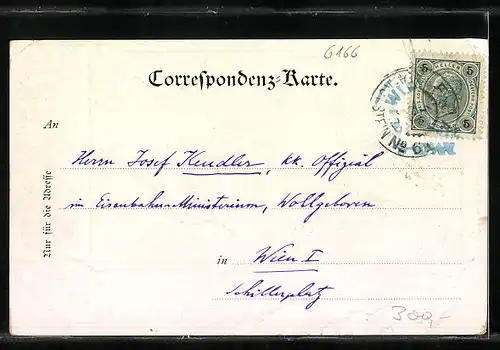 6166
Correspondenz-Karte.
5 HELLER 5
WIEN
An
Herrn Josef Kendler, k.k. Offizial
im Eisenbahn-Ministerium, Wollgeboren
in Wien I
Schillerplatz
Nur für die Adresse
300,-